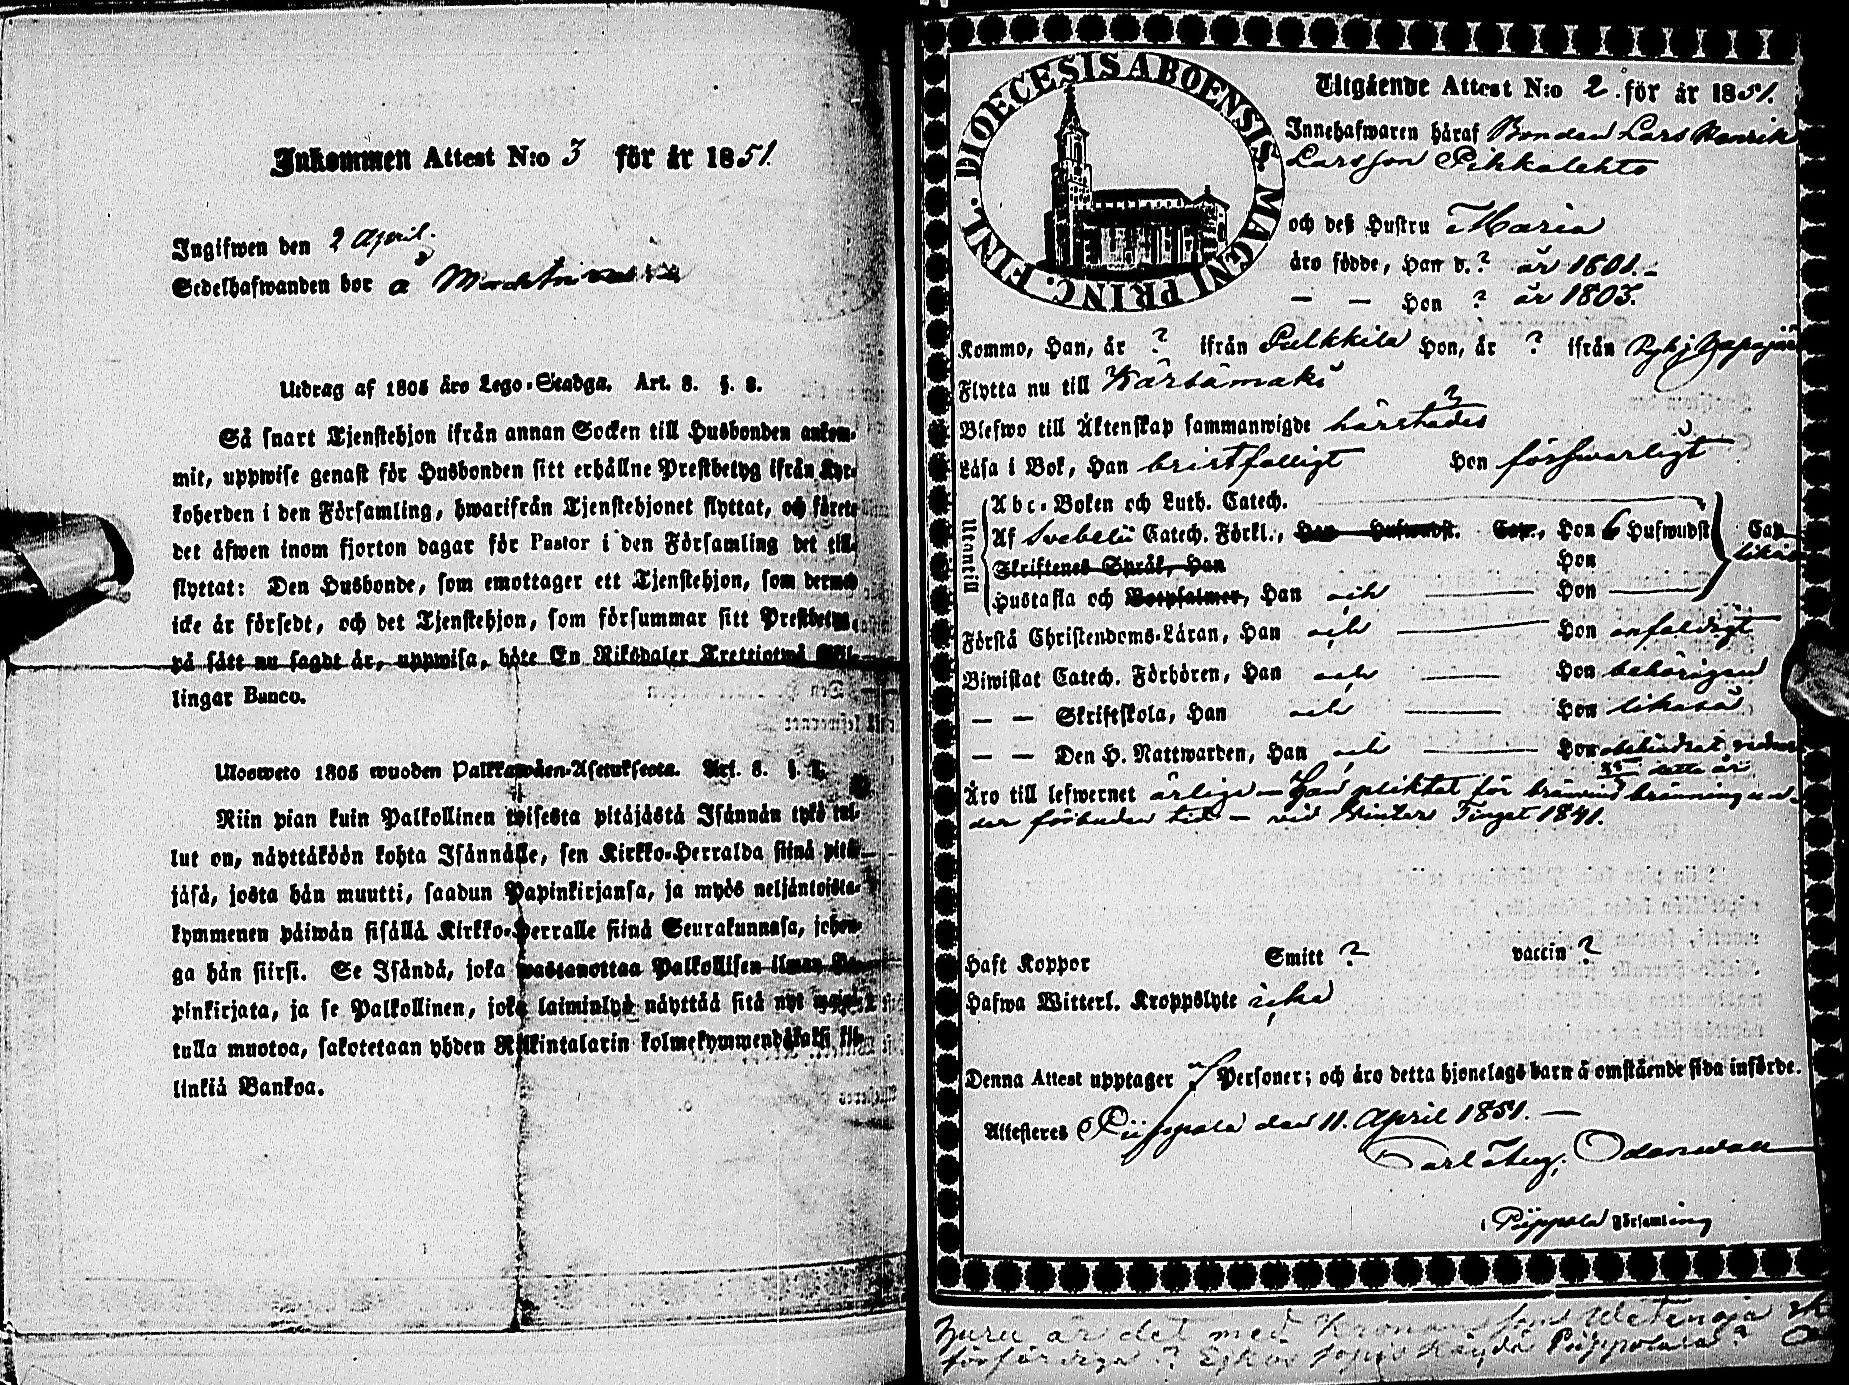 Inkommen Attest N:o 3 för år 1851.
Ingifwen den 2 April.
Sedelhafwanden bor å
Utdrag af 1805 års Lego-Stadga. Art. 8. §. 8.
Så snart Tjenstehjon ifrån annan Socken till Husbonden ankom-
mit, uppwise genast för Husbonden sitt erhållne Prestbetyg ifrån Kyr-
koherden i den Församling, hwarifrån Tjenstehjonet flyttat, och förete
det äfwen inom fjorton dagar för Pastor i den Församling det till-
flyttat: Den Husbonde, som emottager ett Tjenstehjon, som dermed
icke är försedt, och det Tjenstehjon, som försummar sitt Prestbetyg,
på sätt nu sagdt är, uppwisa, böte En Riksdaler Trettiotwå Skil-
lingar Banco.
Ulosweto 1805 wuoden Palkkawäen-Asetuksesta. Art. 8. §.
Niin pian kuin Palkollinen toisesta pitäjästä Isännän tykö tul-
lut on, näyttäköön kohta Isännälle, sen Kirkko-Herralda siinä pitä-
jäsä, josta hän muutti, saadun Papinkirjansa, ja myös neljäntoista-
kymmenen päiwän sisällä Kirkko-Herralle siinä Seurakunnasa, johon-
ga hän siirsi. Se Isändä, joka wastanottaa Palkollisen ilman Pa-
pinkirjata, ja se Palkollinen, joka laiminlyö näyttää sitä nyt
tulla muotoa, sakotetaan yhden Riikintalarin kolmekymmendäkaksi kil-
linkiä Bankoa.
DIOECESIS ABOENSIS. MAGNI PRINC. FINL.
Utgående Attest N:o 2. för år 1851.
Innehafwaren häraf Bonden Lars Henrik
Larsson Pikkalehto
och deß Hustru Maria
äro födde, Han d. ? år 1801.
— — Hon ? år 1803.
Kommo, Han, år ? ifrån Pulkkila Hon, år ? ifrån
Flytta nu till Kärsämäki
Blefwo till Äktenskap sammanwigde härstädes ?
Läsa i Bok, Han bristfälligt Hon förswarligt
Utantill
Abc-Boken och Luth. Catech.
Af Svebelii Catech. Förkl., Han Hufwudst. Cap., Hon 6 Hufwudst Cap
Skriftenes Språk, Han Hon likaså
Hustafla och Botpsalmer, Han och Hon
Första Christendoms-Läran, Han och Hon enfaldigt
Biwistat Catech. Förhören, Han och Hon behörigen
— — Skriftskola, Han och Hon likaså
— — Den H. Nattwarden, Han och Hon obehindrat
detta år
Äro till lefwernet ärlige — Han pliktat för bränvinsbränning un-
der förbuden tid — vid Winter Tinget 1841.
Haft Koppor Smitt ? vaccin ?
Hafwa Witterl. Kroppslyte icke
Denna Attest upptager Personer; och äro detta hjonelags barn å omstående sida införde.
Attesteres Piippola den 11. April 1851. —
Carl Aug. Odenwall
i Piippola Församling
Huru är det med